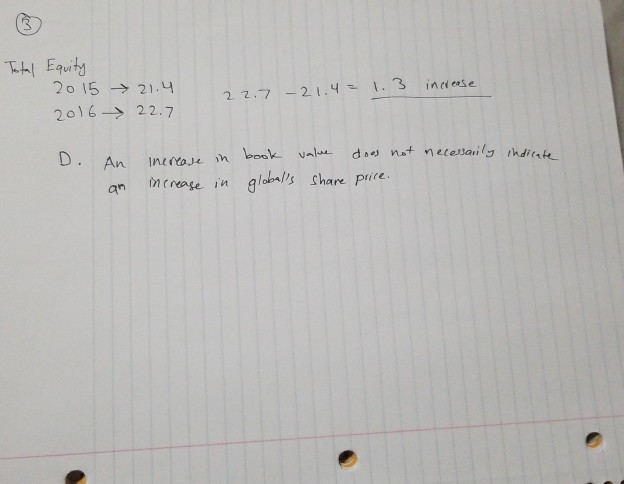 3
Total Equity
2015 → 21.4
22.7 - 21.4 = 1.3 increase
2016 → 22.7
D. An increase in book value does not necessarily indicate
an increase in global's share price.